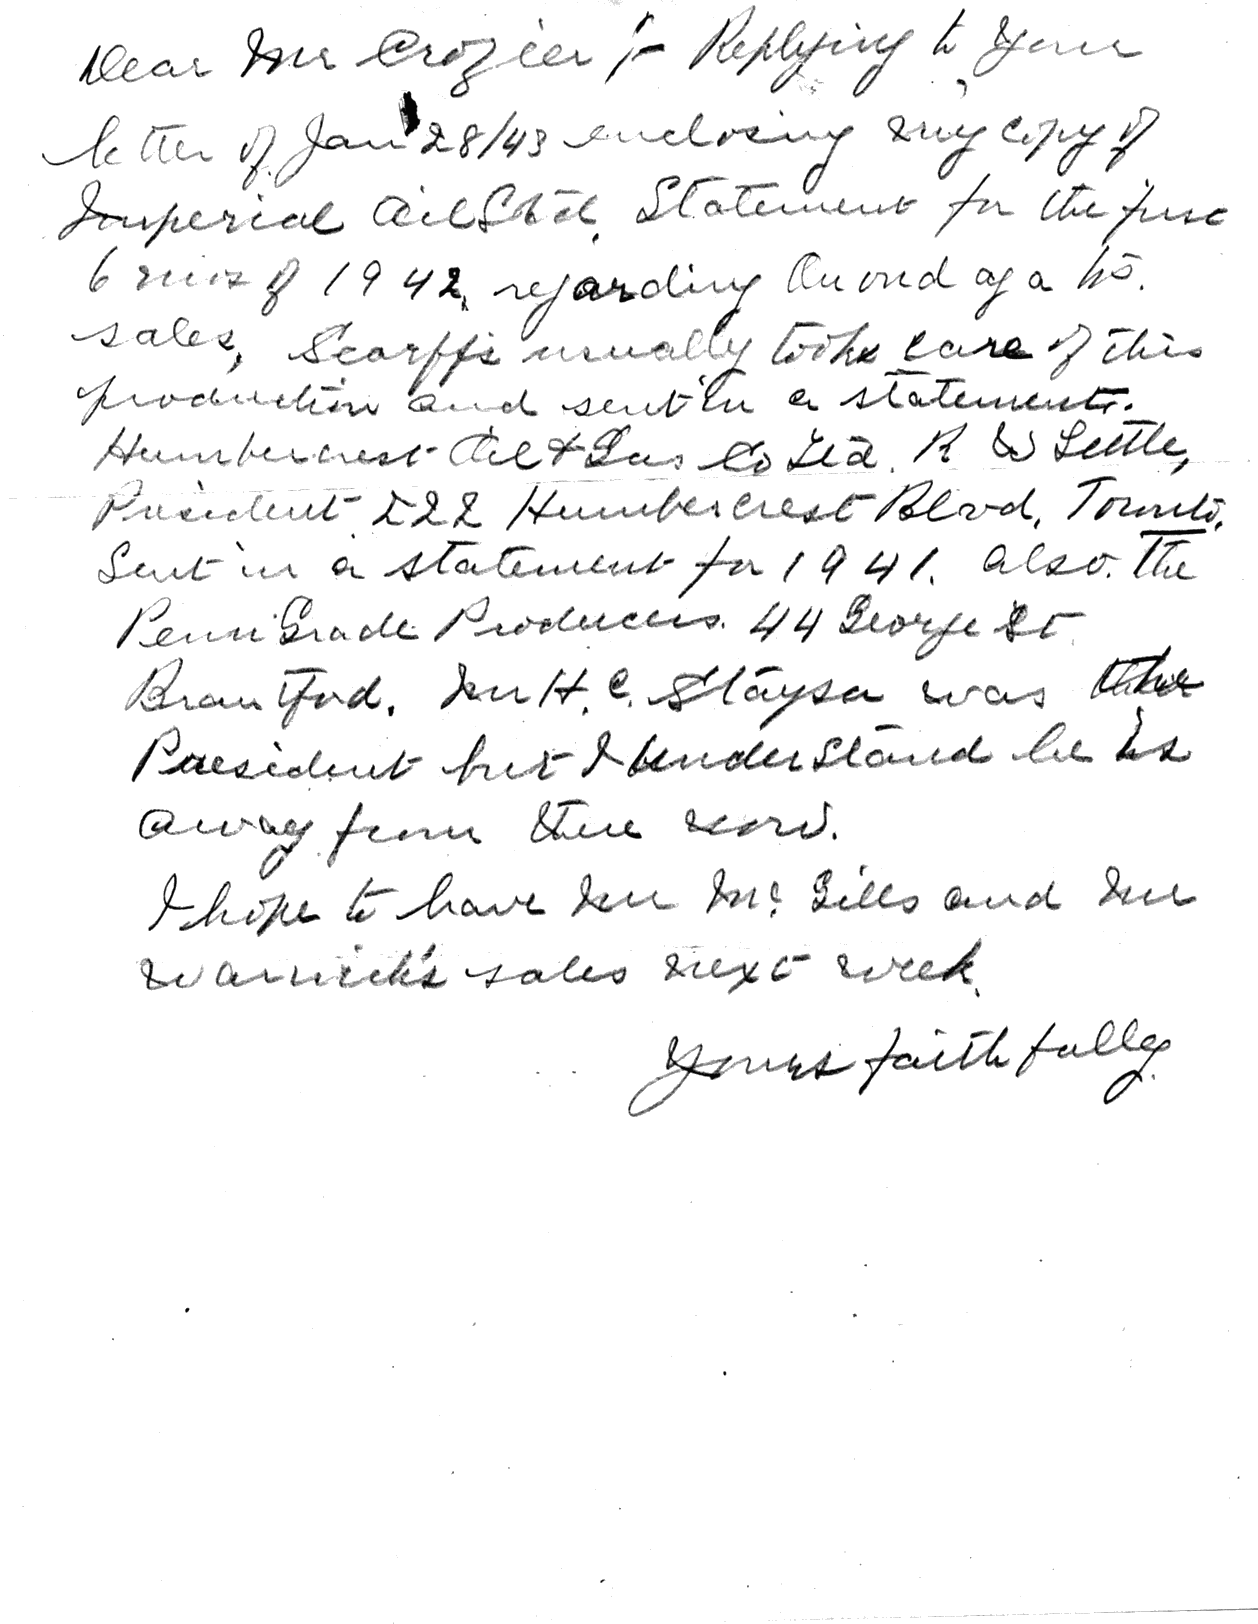 Dear Mr Crozier :- Replying to your
letter of Jan 28/43 enclosing my copy of
Imperial Oil Ltd. Statement for the first
6 mos of 1942, regarding Onondaga No.
sales, Scarffs usually took care of this
production and sent in a statement.
Humbercrest Oil & Gas Co Ltd. R W Little,
President 222 Humbercrest Blvd, Toronto,
Sent in a statement for 1941. also. The
Penn Grade Producers. 44 George St
Brantford. Mr H. C. Staysa was the
President but I understand he is
away from there now.
I hope to have Mr McGills and Mr
Warnick's sales next week.
Yours faithfully.